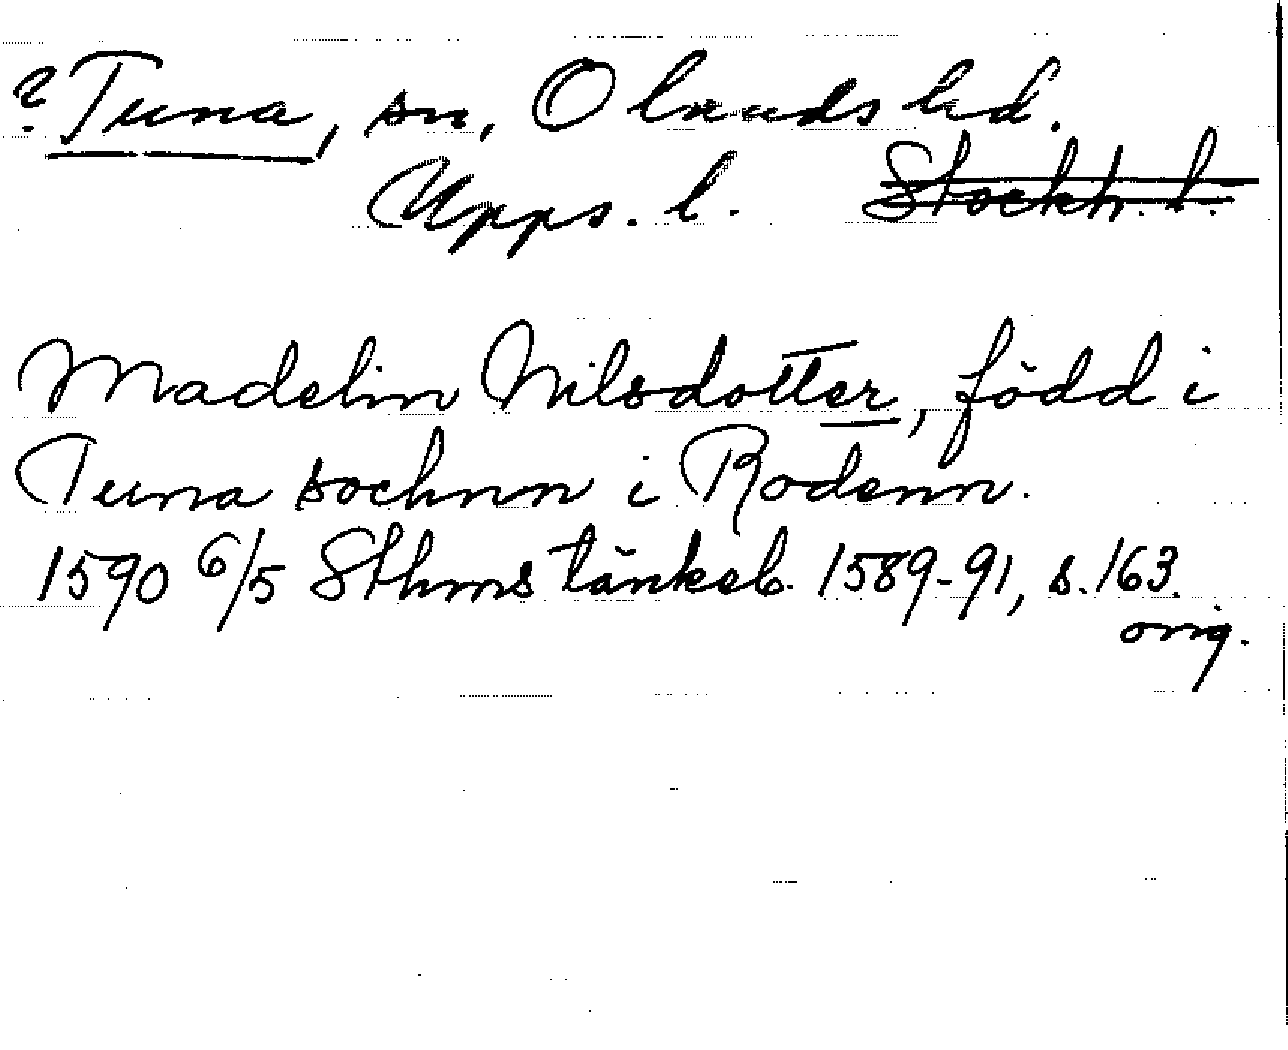 ? Tuna, sn, Olands hd.
Upps. l. Stockh. l.
Madelin Nilsdotter, född i
Tuna sochnn i Rodenn.
1590 6/5 Sthms tänkeb. 1589-91, s. 163.
orig.